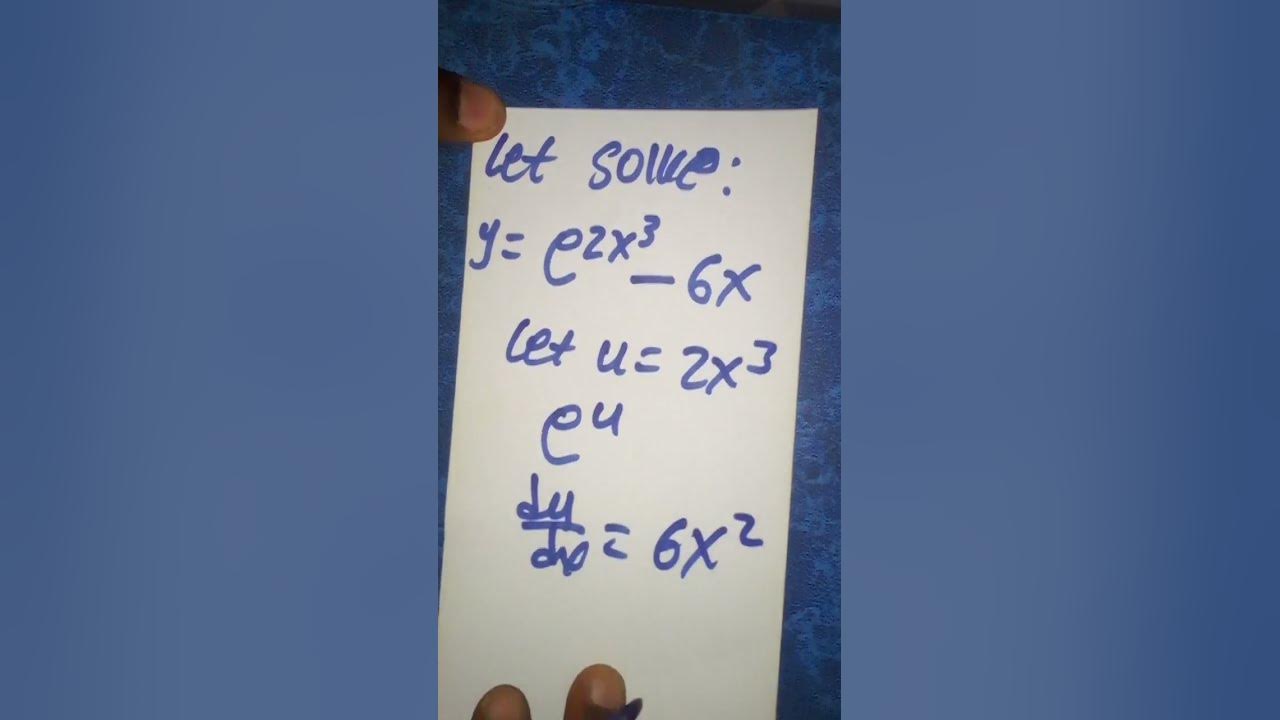 Let solve:
y= e^2x^3 - 6x
let u= 2x^3
e^u
du/dx = 6x^2